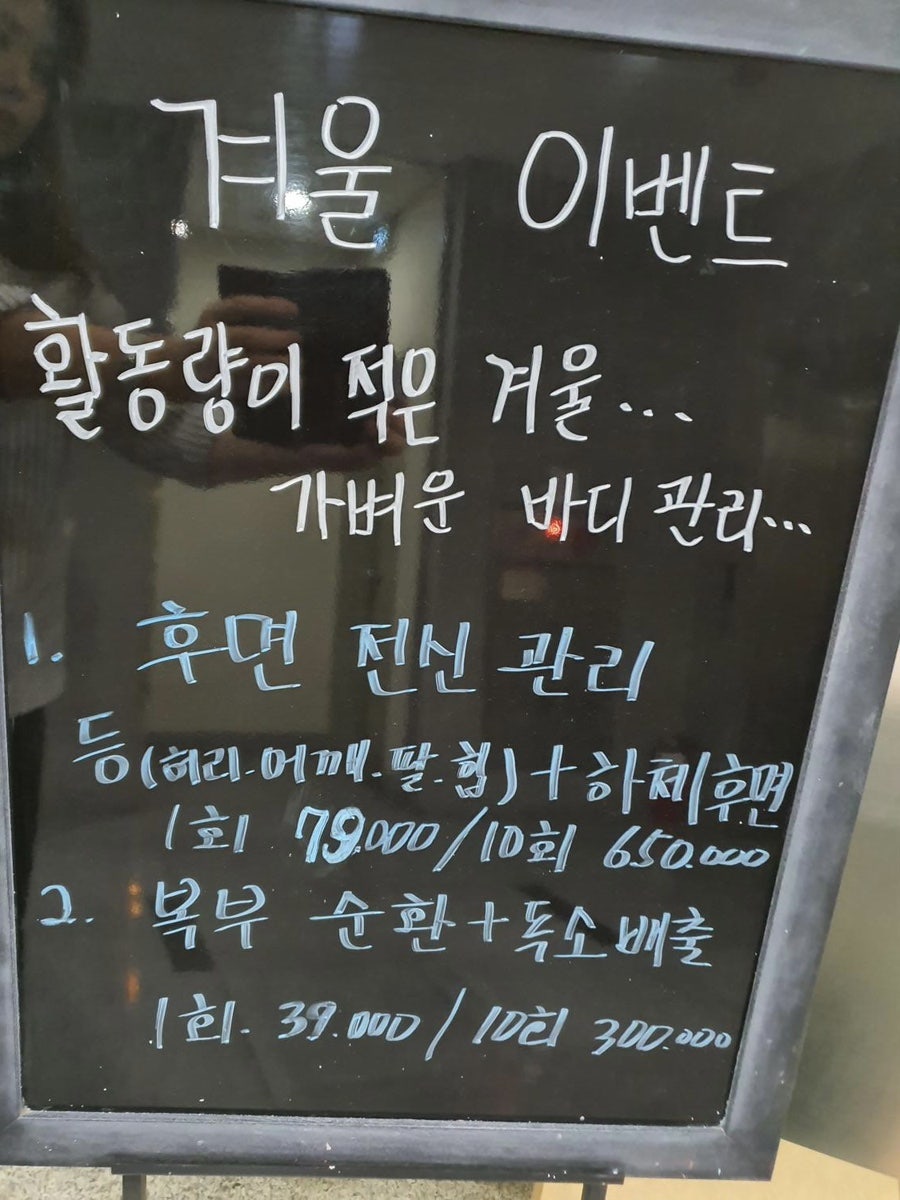 겨울 이벤트
활동량이 적은 겨울...
가벼운 바디 관리...
1. 후면 전신 관리
등(허리.어깨.팔.힙)+하체후면
1회 79.000/10회 650.000
2. 복부 순환+독소배출
1회. 39.000/10회 300.000